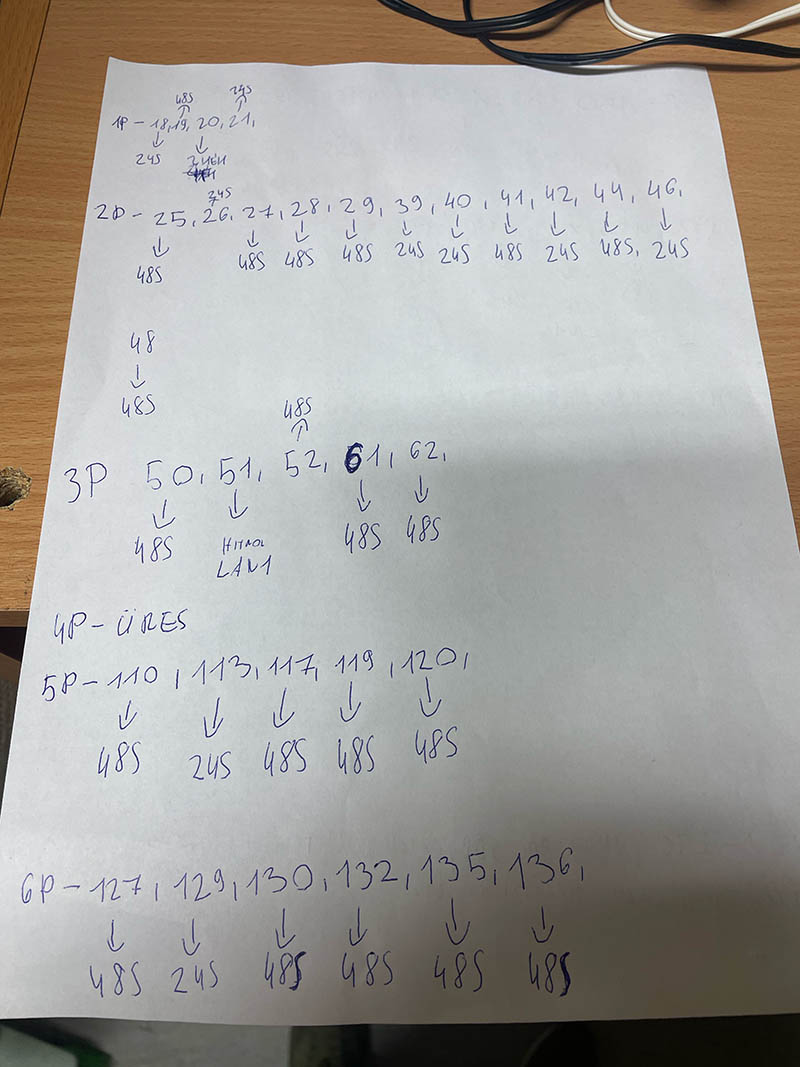 48S 24S
1P - 18, 19, 20, 21,
24S
24S
2P - 25, 26, 27, 28, 29, 39, 40, 41, 42, 44, 46,
48S 48S 48S 48S 24S 24S 48S 24S 48S, 24S
48
48S
48S
3P 50, 51, 52, 61, 62,
48S 48S 48S
LAN1
4P - ÜRES
5P - 110, 113, 117, 119, 120,
48S 24S 48S 48S 48S
6P - 127, 129, 130, 132, 135, 136,
48S 24S 48S 48S 48S 48S